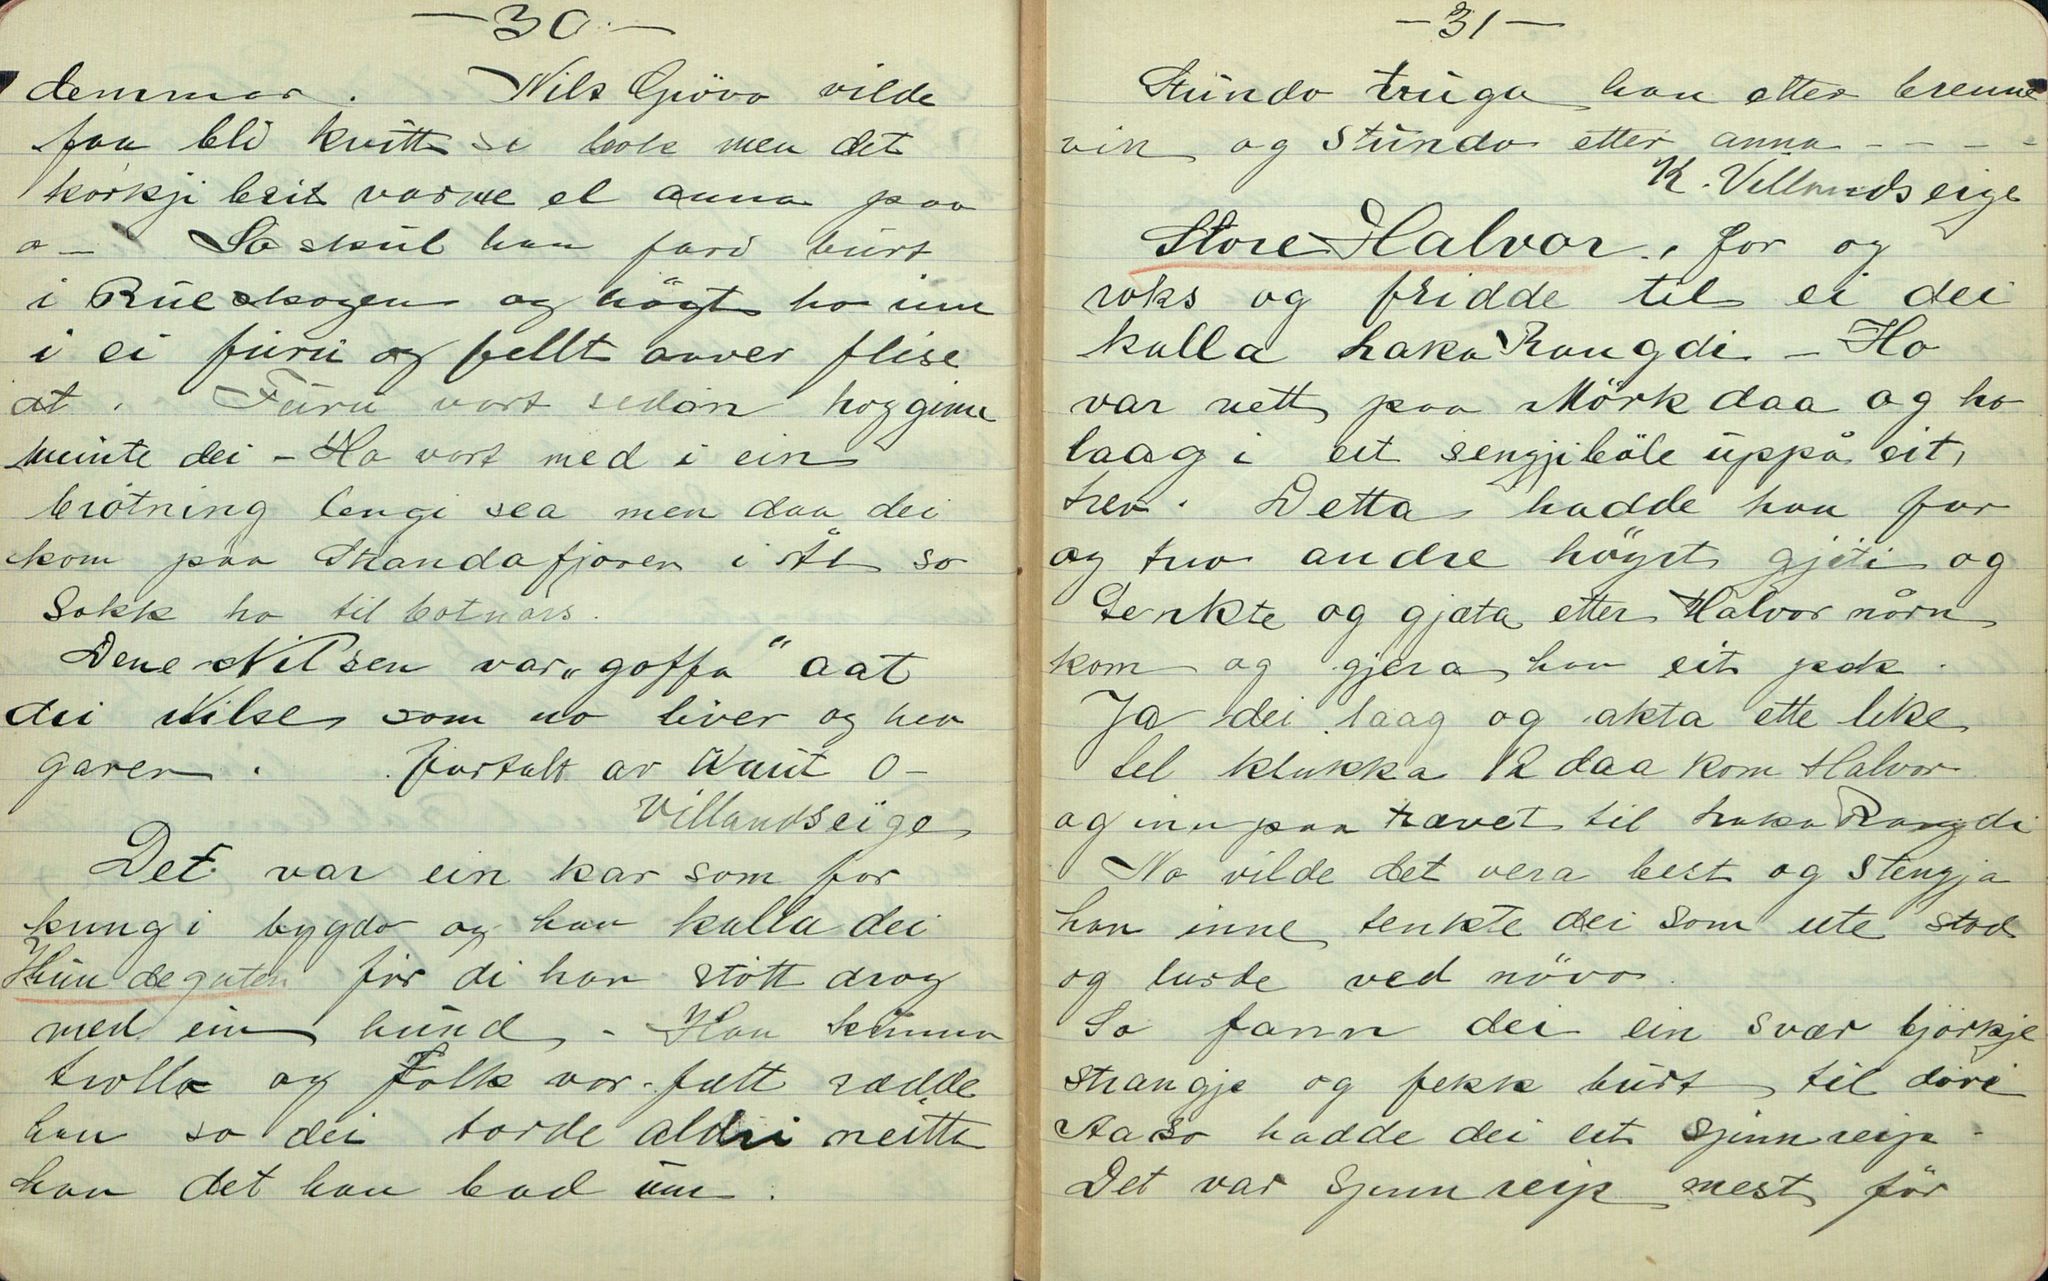 — 30 —
demmar. Nils Gjövo vilde
faa bli kvitt se bok men det
korkji beit varme el anna paa
o – So skul han fari burt
i Rueskogen og högt ho inn
i ei furu og fellt aaver flise
at. Furu vart sedan hoggjinn
meinte dei – Ho vart med i ein
brötning lengi sea men daa dei
kom paa Strandafjoren i Ål so
sokk ho til botnars.
Dene Nilsen var „goffa" aat
dei Nilse som no liver og hev
garen. fortalt av Knut O –
Villandseige
Det var ein kar som for
kring i bygdo og han kalla dei
Hundeguten för di han stött drog
med ein hund – Han kunna
trolla og Folk var fælt rædde
han so dei torde aldri neitta
han det han bad um.
— 31 —
Stundo truga han etter brenne
vin og stundo etter anna – – – –
K. Villandseige
Store Halvor, for og
roks og fridde til ei dei
kalla haka Rangdi – Ho
var nett paa Mörkdaa og ho
laag i eit sengjiböle uppå eit
trev. Detta hadde han far
og tvo andre höyrt gjiti og
tenkte og gjæta etter Halvor nårn
kom og gjera han eit pek.
Ja dei laag og akta ette like
tel klukka 12 daa kom Halvor
og inn paa trævet til haka Rangdi
No vilde det vera best og stengja
han inne tenkte dei som ute stod
og lurde ved növo.
So fann dei ein svær björkje
strangje og fekk burt til döri
Aa so hadde dei eit sjinnreip.
Det var sjinnreip mest för